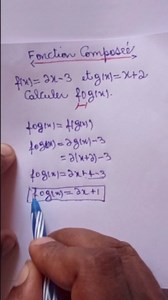 Fonction Composée
f(x) = 2x-3 et g(x) = x+2
Calculer fog(x).
fog(x) = f(g(x))
fog(x) = 2g(x)-3
= 2(x+2)-3
fog(x) = 2x+4-3
fog(x) = 2x+1